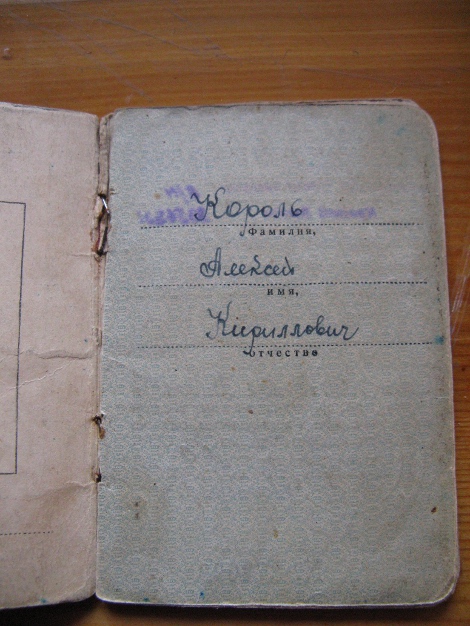 Король
Фамилия,
Алексей
имя,
Кириллович
отчество